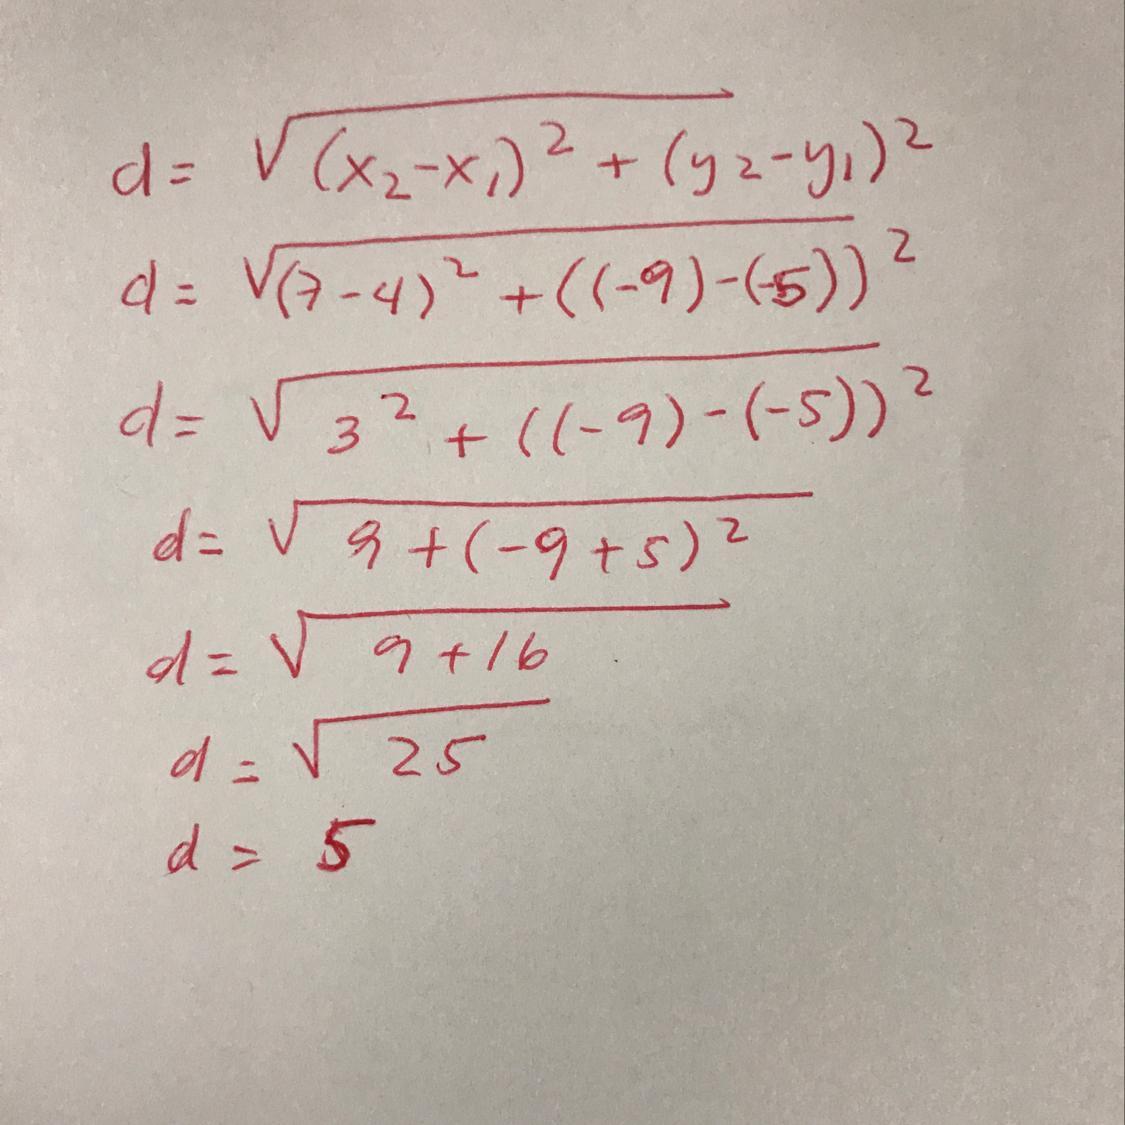 d = √(x₂-x₁)² + (y₂-y₁)²
d = √(7-4)² + ((-9)-(-5))²
d = √3² + ((-9)-(-5))²
d = √9+(-9+5)²
d = √9+16
d = √25
d = 5